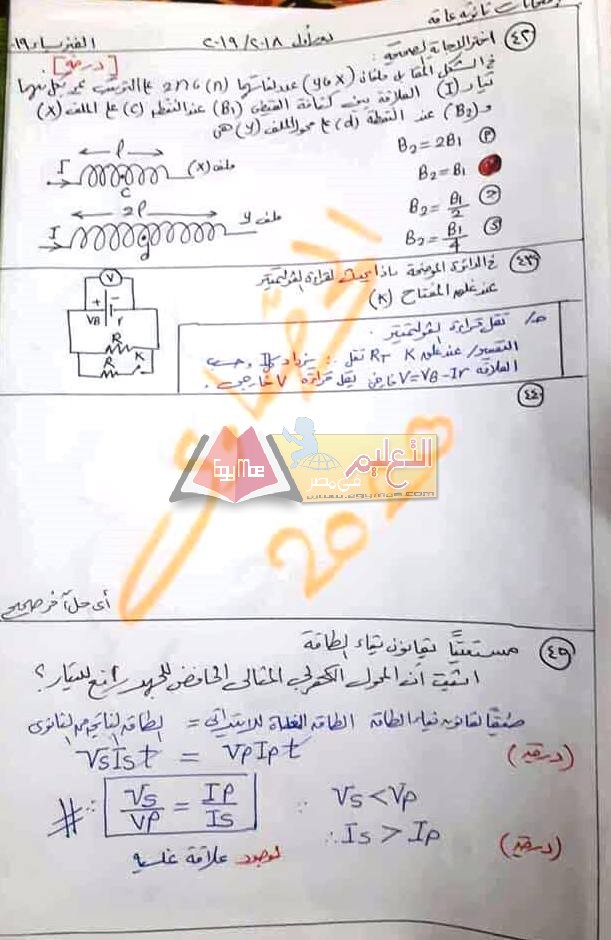 امتحانات ثانوية عامة دور أول ٢٠١٨/٢٠١٩ الفيزياء ٢٠١٩
٤٢ اختر الإجابة الصحيحة: [درجة]
في الشكل المقابل ملفان (x و y) عدد لفاتهما (n) و 2n على الترتيب يمر بكل منهما
تيار (I) العلاقة بين كثافة الفيض (B₁) عند النقطة (c) على الملف (X)
و (B₂) عند النقطة (d) على محور الملف (y) هي
B₂ = 2B₁
B₂ = B₁
B₂ = B₁/2
B₂ = B₁/4
I l ملف (X) c
I 2l ملف y d
٤٣ في الدائرة الموضحة ماذا يحدث لقراءة الفولتميتر
عند غلق المفتاح (K)
V + - VB r R R K
ج/ تقل قراءة الفولتميتر.
التفسير/ عند غلق K تقل RT ∴ يزداد I وحسب
العلاقة V = VB - Ir تقل قراءة V خارجي.
٤٤
التعليم
في مصر
EgyMoe
www.egymoe.com
2020
أي حل آخر صحيح
٤٥ مستعيناً بقانون بقاء الطاقة
اثبت أن المحول الكهربي المثالي الخافض للجهد رافع للتيار؟
طبقاً لقانون بقاء الطاقة الطاقة المعطاة للابتدائي = الطاقة الناتجة من الثانوي
VsIst = VpIpt (درجة)
# ∴ Vs/Vp = Ip/Is ∵ Vs < Vp
∴ Is > Ip (درجة)
لوجود علاقة عكسية